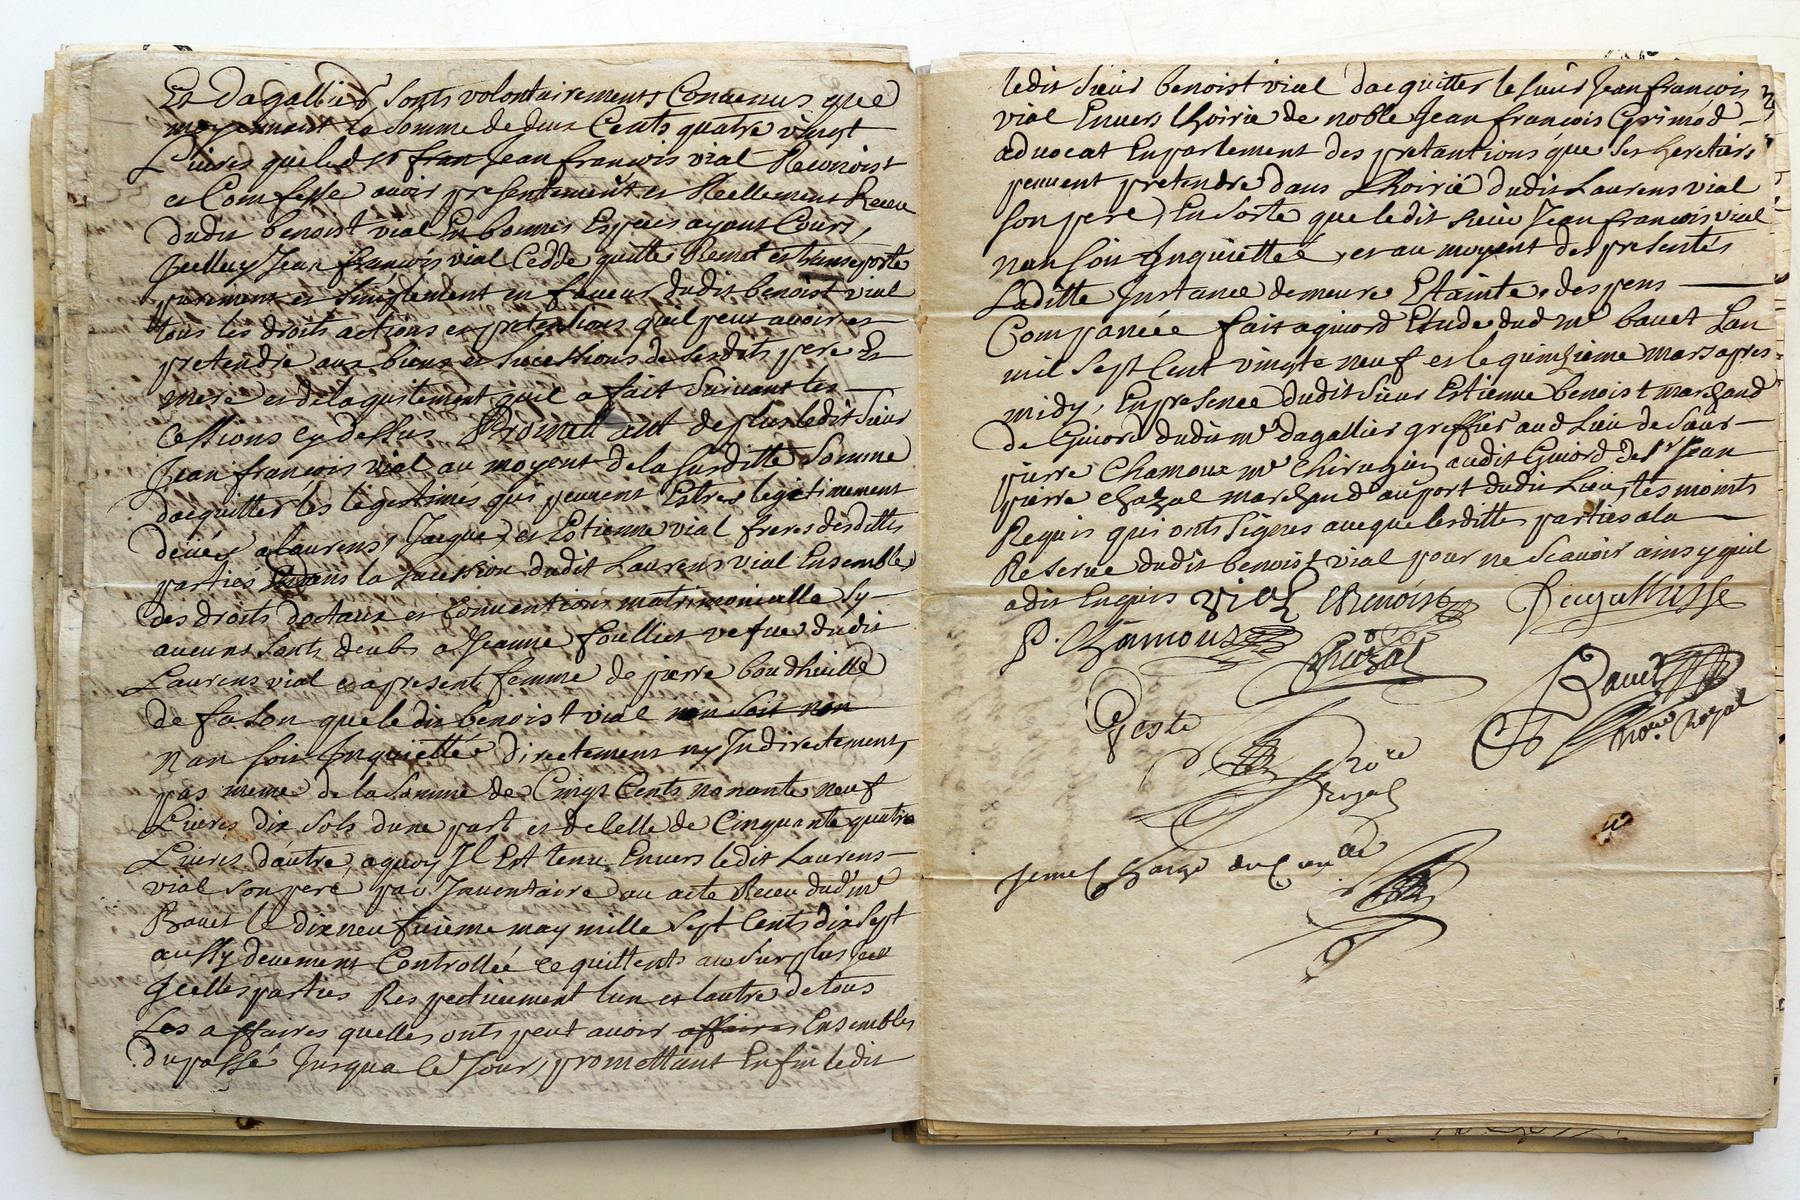 Et Dagallier sonts volontairements Conuenus que
moyennant la somme de deux Cents quatre vingt
Liures que led sr fran Jean francois vial Reconoist
et Comfesse auoir presentement et Reellement Receu
dudit benoist vial En bonnes Especes ayant Cours,
Jcelluy Jean francois vial Cedde quitte Remet et transporte
purement et simplement en faueur dudit benoist vial
tous les droits actions et pretentions quil peut auoir et
pretendre aux biens et sucessions de sesdits pere Et
mere et de laquitement quil a fait suiuant les
Cessions cy dessus Promettant de plus ledit sieur
Jean francois vial au moyent de la susditte somme
dacquitter les legestimes qui peuuent Estre legitimement
deües a laurens, Jacque et Estienne vial freres desdittes
parties dans la sucession dudit Laurens vial Ensemble
des droits doctaux et Conuentions matrimonialle sy
aucuns sonts deubs a Jeanne foullier vefue dudit
Laurens vial et apresent femme de pierre boudhuille
de fason que le dit benoist vial non soit non
nan soit Jnquietté directement ny Jndirectement,
pas meme de la somme de Cinqs Cents nonante neuf
Liures dix sols dune part et de Celle de Cinquante quatre
Liures dautre, aquoy Jl Est tenu Enuers ledit Laurens
vial son pere par Jnuentaire au acte Receu dud mr
Bauet le dix neufuieme may mille sept Cents dix sept
aussy deuement Controllée ce quittents au surplus
Jcelles parties Respectiuement lun et lautre de tous
Les affaires quelles onts peut auoir affaires Ensembles
du passé Jusqua Ce Jour, promettant Enfin ledit
ledit sieur benoist vial dacquitter le sieur Jean francois
vial Enuers Lhoirie de noble Jean francois Grimod
aduocat En parlement des pretantions que ses heretiers
peuuent pretendre dans Lhoirie dudit Laurens vial
son pere En sorte que ledit sieur Jean francois vial
nan soit Jnquiettée, et au moyent des presentes
Laditte Jnstance demeure Etainte, despens
Companeée fait a giuord Etude dud mr bauet Lan
mil sept Cent vingte neuf et le quinzieme mars apres
midy, En presence dudit sieur Estienne benoist marchand
de Giuord dudit mr dagallier greffier aud Lieu de sieur
pierre Chamoux mr Chirugien audit Giuord de sr Jean
pierre chazal marchand au port dudit Lieu, tesmoints
Requis qui onts signes aueque lesditte parties a la
Reserue dudit benoist vial pour ne scauoir ainsy quil
a dit Enquis vial Benoist Dagallier
P. Chamoux Chazal
Bauet
Geste nore Royal
nore
Royal